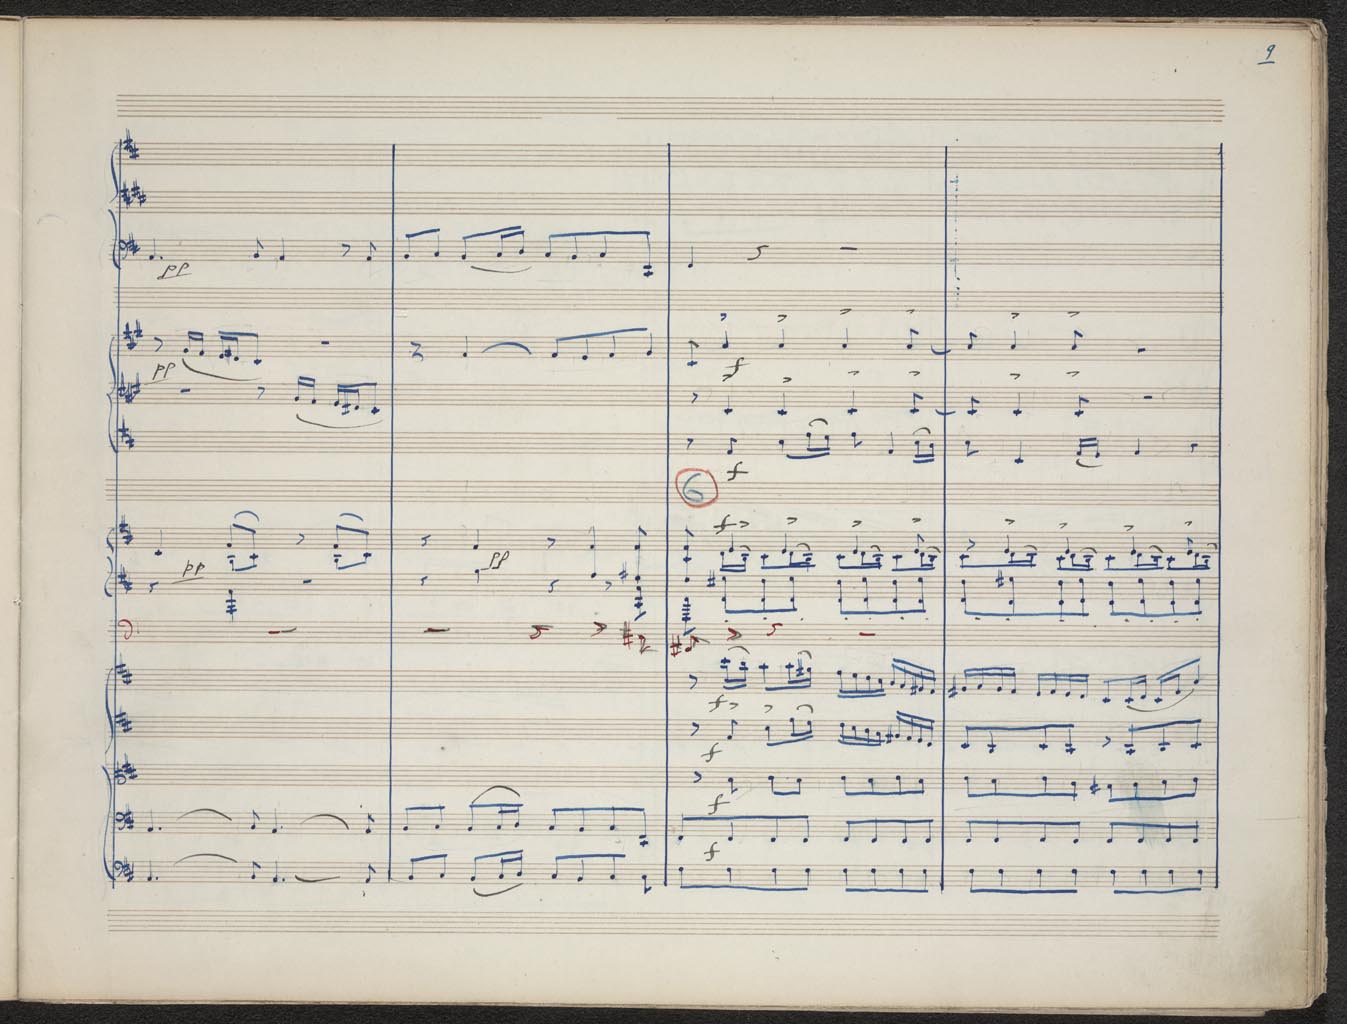 9
pp
pp
f
f
6
f
pp
pp
f
f
f
f